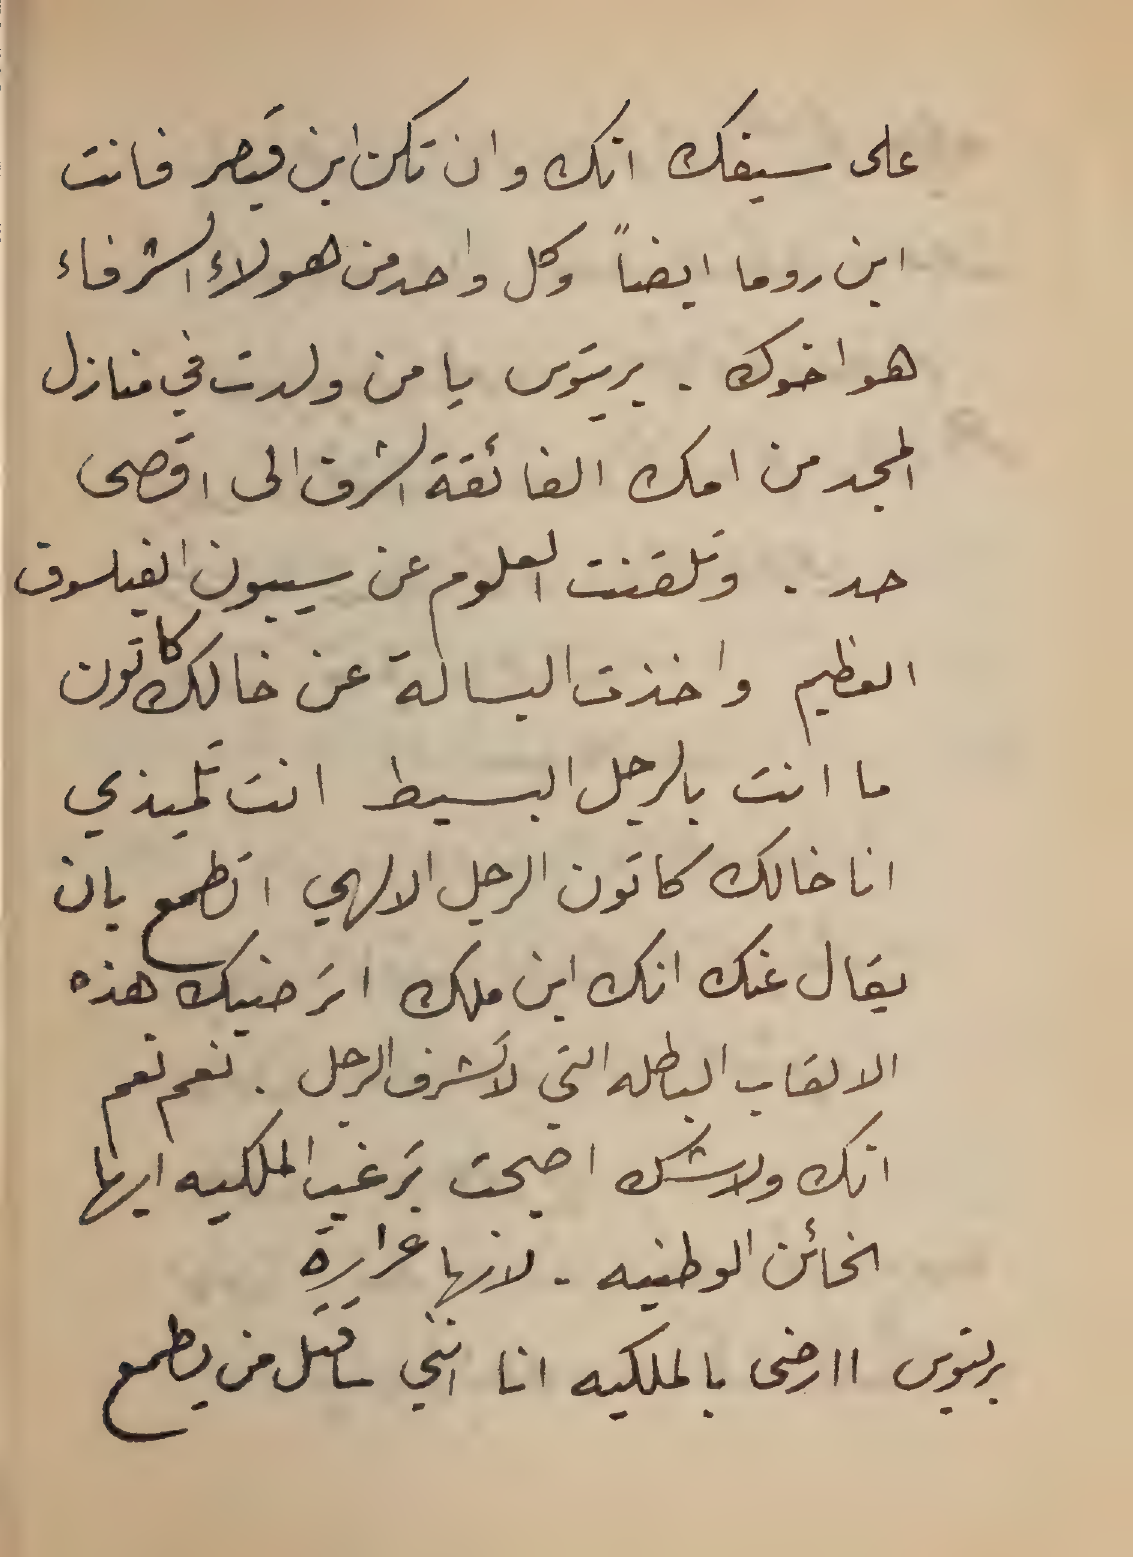 على سيفك انك وان تكن ابن قيصر فانت
ابن روما ايضاً وكل واحد من هولاء الشرفاء
هو اخوك . بريتوس يا من ولدت في منازل
المجد من امك الفائقة الشرف الى اقصى
حد . وتلقنت العلوم عن سيبون الفيلسوف
العظيم واخذت البسالة عن خالك كاتون
ما انت بالرجل البسيط انت تلميذي
انا خالك كاتون الرجل الالهي اتطمع بان
يقال عنك انك ابن ملك اترضيك هذه
الالقاب الباطله التي لا تشرف الرجل . نعم نعم
انك ولا شك اضحت ترغب الملكيه ايها
الخائن الوطنيه . لانها غرارة
بريتوس اارضى بالملكيه انا انني ساقتل من يطمع